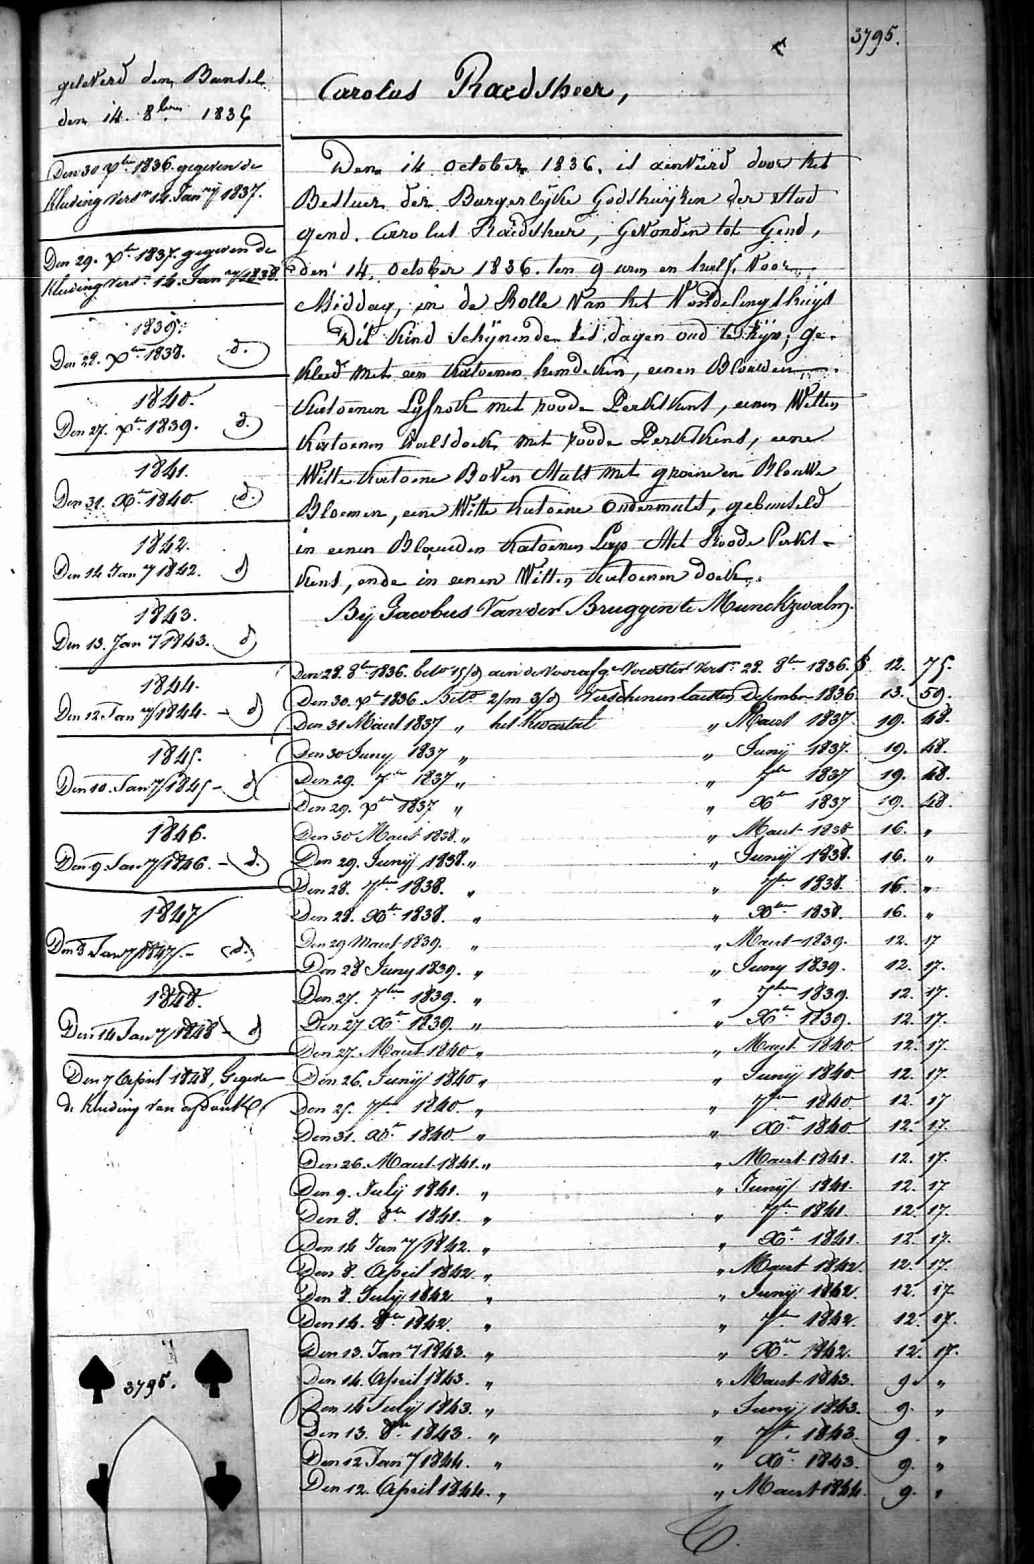 3795.
gelevert den Bunsel
den 14. 8ber 1836
Den 30 Xber 1836. gegeven de
kleeding vers. 14 Janry 1837.
Den 29. Xber 1837. gegeven de
kleeding vers. 14. Janry 1838.
1839.
Den 28. Xber 1838. d.
1840.
Den 27. Xber 1839. d.
1841.
Den 31. Xber 1840 d.
1842.
Den 14 Janry 1842. d
1843.
Den 13. Janry 1843. d
1844.
Den 12 Janry 1844. - d
1845.
Den 10. Janry 1845 - d
1846.
Den 9. Janry 1846. - d.
1847
Den 8 Janry 1847. - d.
1848.
Den 14 Janry 1848 - d
Den 7 April 1848, Gegeve
de kleeding van
3795.
Carolus Raedsheer,
Den 14 October 1836. is aenveird door het
Bestuer der Burgerlyke Godshuyzen der stad
gend. Carolus Raedsheer, gevonden tot Gend,
den 14. October 1836. ten 9 uren en half, voor
Middag, in de Rolle van het Vondelingshuys
Dit kind schynende dagen oud te zyn, ge-
kleed met een katoenen hemdeken, eenen Blauwen
katoenen Lyfrok met roode Perkskens, eenen Witten
katoenen halsdoek met roode Perkskens, eene
Witte katoene Boven Muts met groene en Blauwe
Bloemen, eene Witte katoene ondermuts, gebunseld
in eenen Blauwen katoenen Lap Met Roode Perks-
kens, ende in eenen Witten katoenen doek.
Bij Jacobus Van der Bruggen te Munckzwalm.
Den 28. 8ber 1836. aen de Voorafg. Voedster Vers. 28. 8ber 1836. 12. 75.
Den 30. Xber 1836 Bet. 2/m 3/d Verschenen laetsten December 1836 13. 59.
Den 31 Maert 1837 " het kwartael " Maert 1837. 19. 48.
Den 30 Juny 1837 " " Junij 1837. 19. 48.
Den 29. 7ber 1837 " " 7ber 1837 19. 48.
Den 29. Xber 1837 " " Xber 1837 19. 48.
Den 30 Maert 1838. " " Maert 1838 16. "
Den 29. Junij 1838. " " Junij 1838. 16. "
Den 28. 7ber 1838. " " 7ber 1838. 16. "
Den 28. Xber 1838. " " Xber 1838. 16. "
Den 29 Maert 1839. " " Maert 1839. 12. 17
Den 28 Juny 1839. " " Juny 1839. 12. 17.
Den 27. 7ber 1839. " " 7ber 1839. 12. 17.
Den 27 Xber 1839. " " Xber 1839. 12. 17.
Den 27. Maert 1840 " " Maert 1840 12. 17.
Den 26. Junij 1840 " " Junij 1840 12. 17.
Den 25. 7ber 1840 " " 7ber 1840 12. 17
Den 31. Xber 1840 " " Xber 1840 12. 17.
Den 26. Maert 1841. " " Maert 1841. 12. 17.
Den 9. Julij 1841. " " Junij 1841. 12. 17
Den 8. 8ber 1841. " " 7ber 1841. 12. 17.
Den 14 Janry 1842. " " Xber 1841. 12. 17.
Den 8. April 1842 " " Maert 1842. 12. 17.
Den 8. July 1842. " " Junij 1842. 12. 17
Den 14. 8ber 1842. " " 7ber 1842. 12. 17.
Den 13. Janry 1843. " " Xber 1842. 12. 17.
Den 14. April 1843. " " Maert 1843. 9. "
Den 14 July 1843. " " Junij 1843. 9. "
Den 13. 8ber 1843. " " 7ber 1843. 9. "
Den 12 Janry 1844. " " Xber 1843. 9. "
Den 12. April 1844. " " Maert 1844. 9. "